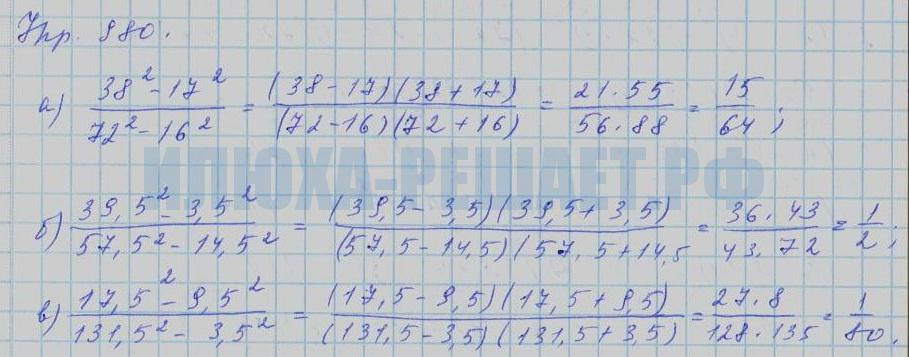 Упр. 880.
а) (38² - 17²)/(72² - 16²) = ((38-17)(38+17))/((72-16)(72+16)) = (21·55)/(56·88) = 15/64;
ИЛЮХА-РЕШАЕТ.РФ
б) (39,5² - 3,5²)/(57,5² - 14,5²) = ((39,5-3,5)(39,5+3,5))/((57,5-14,5)(57,5+14,5 = (36·43)/(43·72) = 1/2;
в) (17,5² - 9,5²)/(131,5² - 3,5²) = ((17,5-9,5)(17,5+9,5))/((131,5-3,5)(131,5+3,5)) = (27·8)/(128·135) = 1/80.